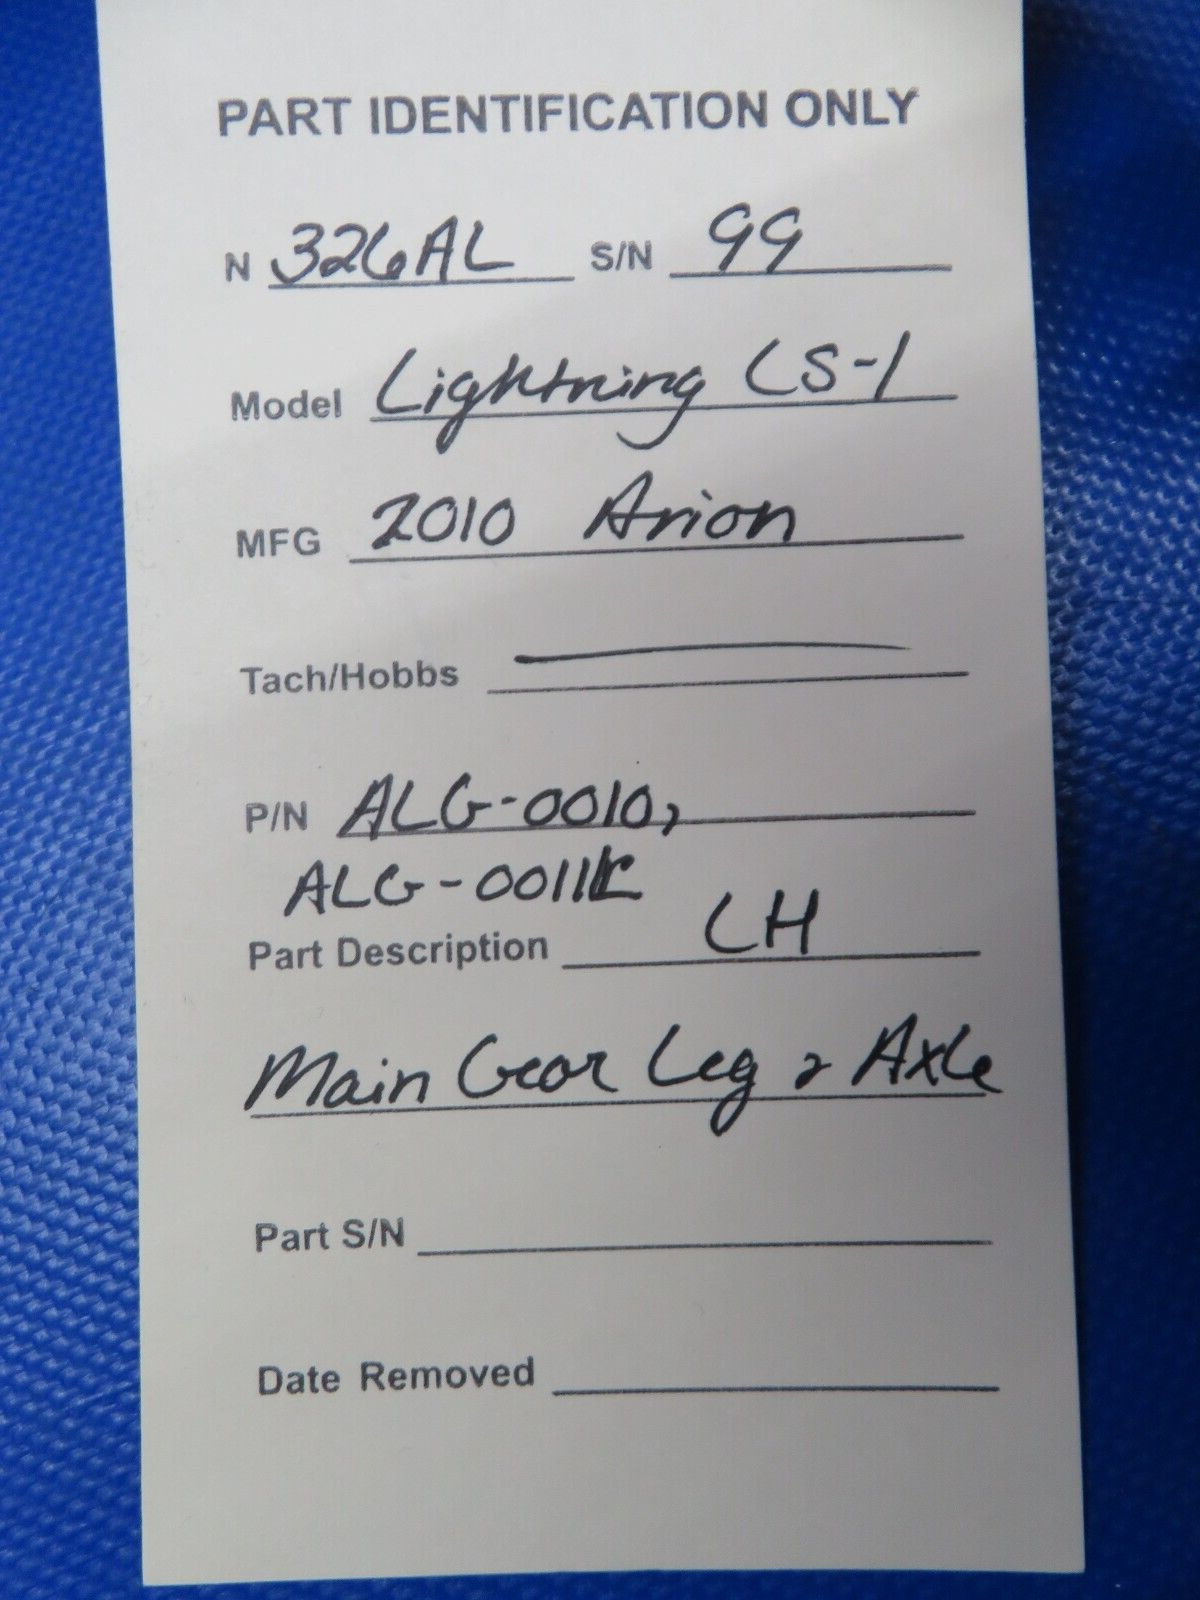 PART IDENTIFICATION ONLY
N 326AL S/N 99
Model Lightning LS-1
MFG 2010 Arion
Tach/Hobbs
P/N ALG-0010,
ALG-0011
Part Description LH
Main Gear Leg & Axle
Part S/N
Date Removed